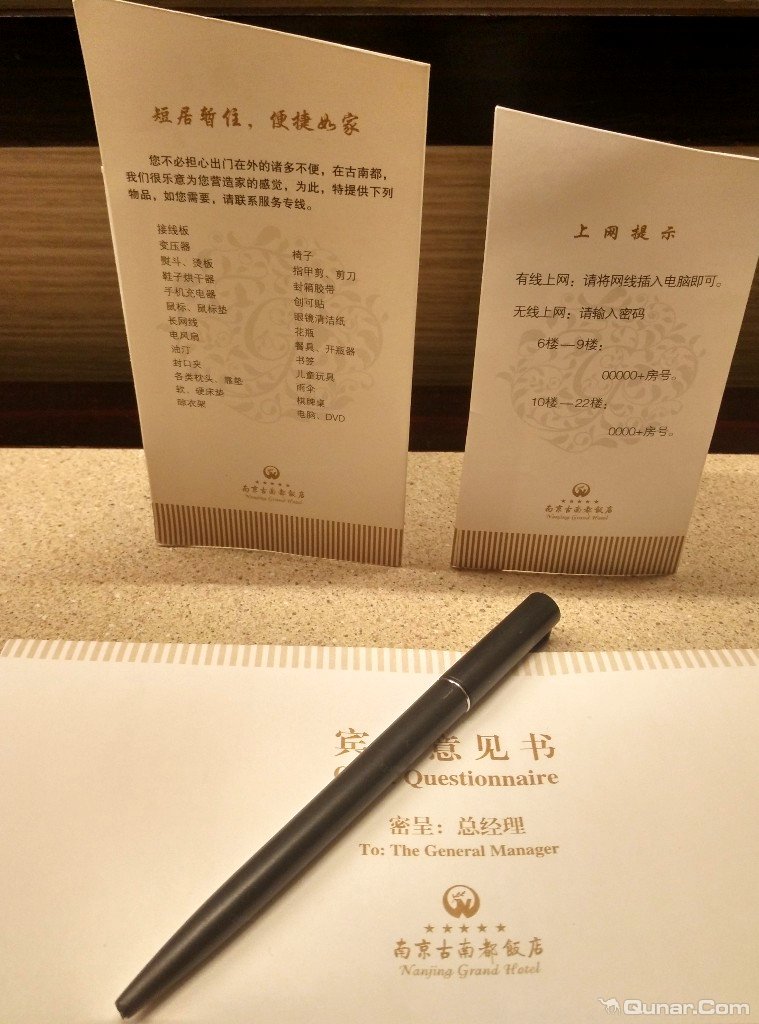 短居暂住，便捷如家
您不必担心出门在外的诸多不便，在古南都，
我们很乐意为您营造家的感觉，为此，特提供下列
物品，如您需要，请联系服务专线。
接线板
变压器
熨斗、烫板
鞋子烘干器
手机充电器
鼠标、鼠标垫
长网线
电风扇
油汀
封口夹
各类枕头、靠垫
软、硬床垫
晾衣架
椅子
指甲剪、剪刀
封箱胶带
创可贴
眼镜清洁纸
花瓶
餐具、开瓶器
书签
儿童玩具
雨伞
棋牌桌
电脑、DVD
南京古南都飯店
Nanjing Grand Hotel
上网提示
有线上网：请将网线插入电脑即可。
无线上网：请输入密码
6楼—9楼：
00000+房号。
10楼—22楼：
0000+房号。
南京古南都飯店
Nanjing Grand Hotel
宾 意见书
Questionnaire
密呈：总经理
To: The General Manager
南京古南都飯店
Nanjing Grand Hotel
Qunar.Com